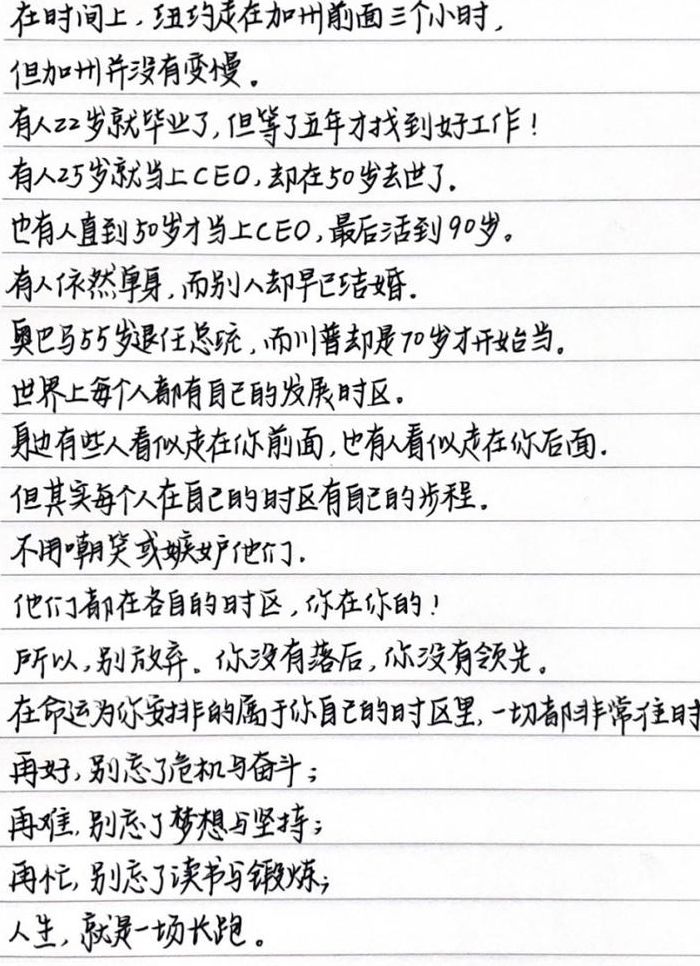 在时间上，纽约走在加州前面三个小时，
但加州并没有变慢。
有人22岁就毕业了，但等了五年才找到好工作！
有人25岁就当上CEO，却在50岁去世了．
也有人直到50岁才当上CEO，最后活到90岁。
有人依然单身，而别人却早已结婚．
奥巴马55岁退任总统，而川普却是70岁才开始当。
世界上每个人都有自己的发展时区。
身边有些人看似走在你前面，也有人看似走在你后面．
但其实每个人在自己的时区有自己的步程。
不用嘲笑或嫉妒他们．
他们都在各自的时区，你在你的！
所以，别放弃。你没有落后，你没有领先。
在命运为你安排的属于你自己的时区里，一切都非常准时
再好，别忘了危机与奋斗；
再难，别忘了梦想与坚持；
再忙，别忘了读书与锻炼；
人生，就是一场长跑。